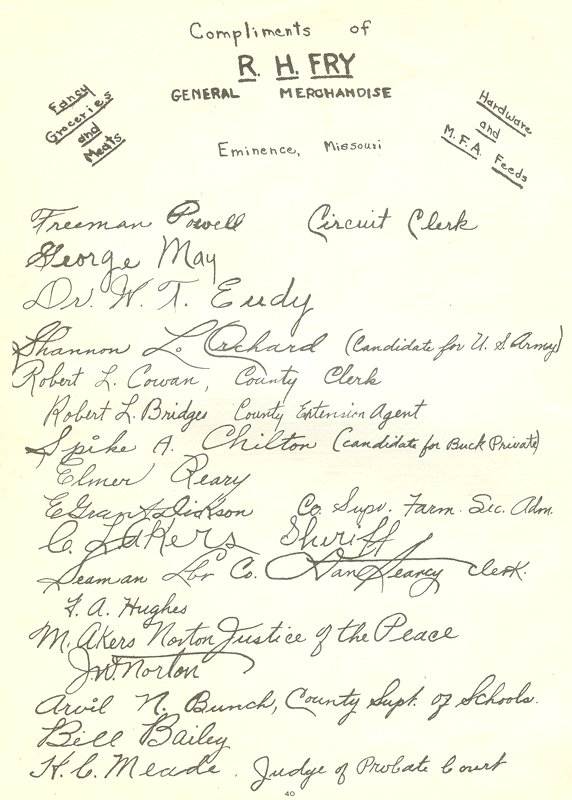 Compliments of
R. H. FRY
GENERAL MERCHANDISE
Fancy
Groceries
and
Meats
Hardware
and
M.F.A. Feeds
Eminence, Missouri
Freeman Powell Circuit Clerk
George May
Dr. W. T. Eudy
Shannon L. Orchard (Candidate for U. S Army)
Robert L. Cowan, County Clerk
Robert L. Bridges County Extension Agent
Spike A. Chilton (candidate for Buck Private)
Elmer Reary
E Grant Dickson Co. Supv. Farm. Sec. Adm.
C. L. Akers Sheriff
Seaman Lbr Co. Dan Searcy Clerk.
F. A. Hughes
M. Akers Norton Justice of the Peace
Norton
Arvil N. Bunch, County Supt. of Schools.
Bill Bailey
H. C. Meade, Judge of Probate Court
40